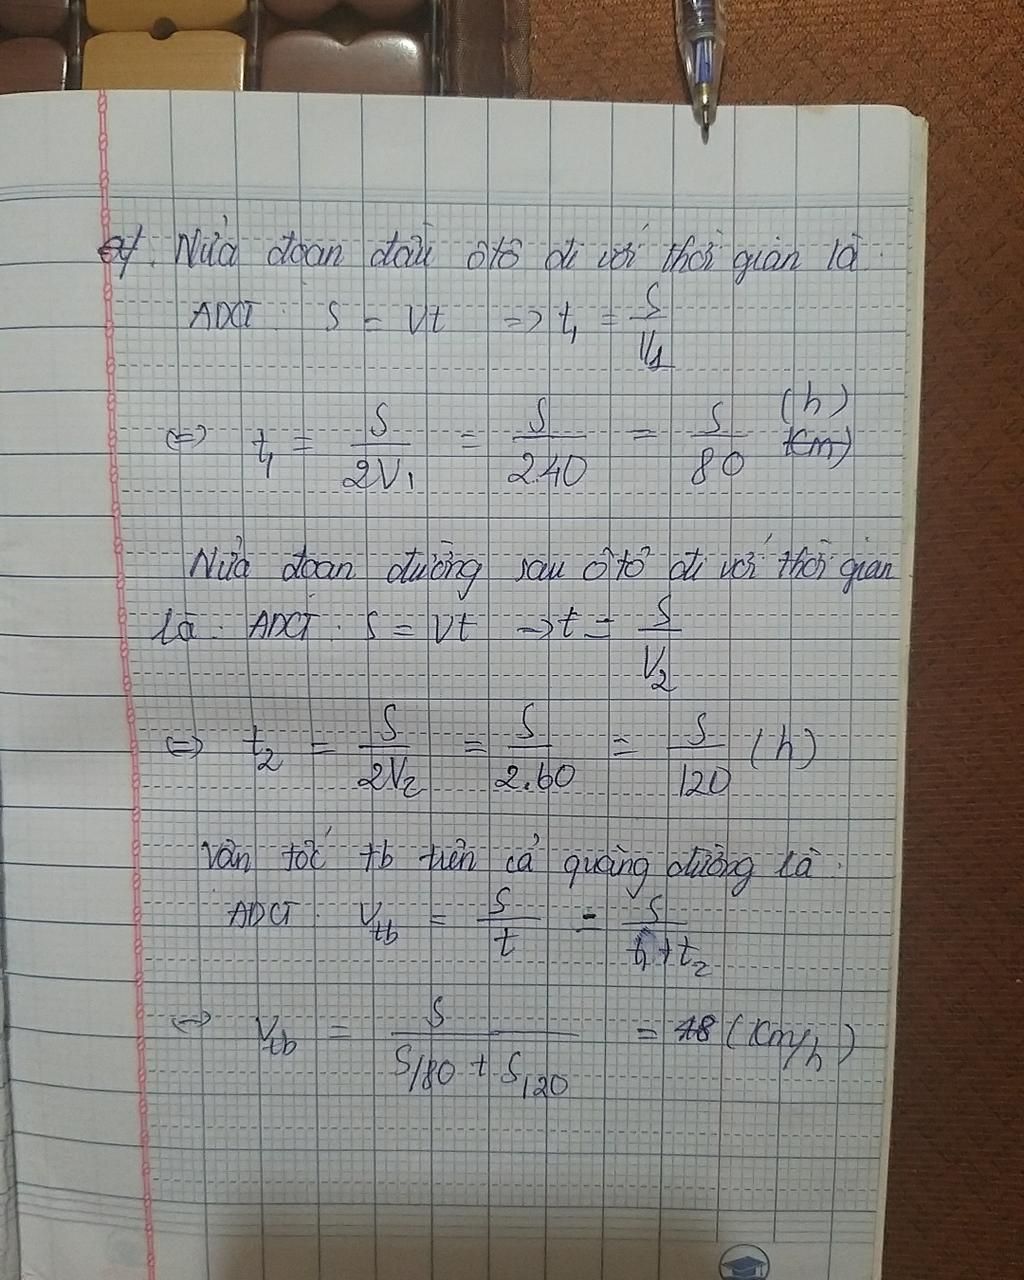 a). Nửa đoạn đầu ôtô đi với thời gian là:
ADCT: S = Vt => t₁ = S/V₁
<=> t₁ = S/2V₁ = S/2.40 = S/80 (h)
Nửa đoạn đường sau ôtô đi với thời gian
là: ADCT: S = Vt -> t = S/V₂
<=> t₂ = S/2V₂ = S/2.60 = S/120 (h)
Vận tốc tb trên cả quãng đường là:
ADCT: Vtb = S/t = S/(t₁ + t₂)
<=> Vtb = S/(S/80 + S/120) = 48 (Km/h)